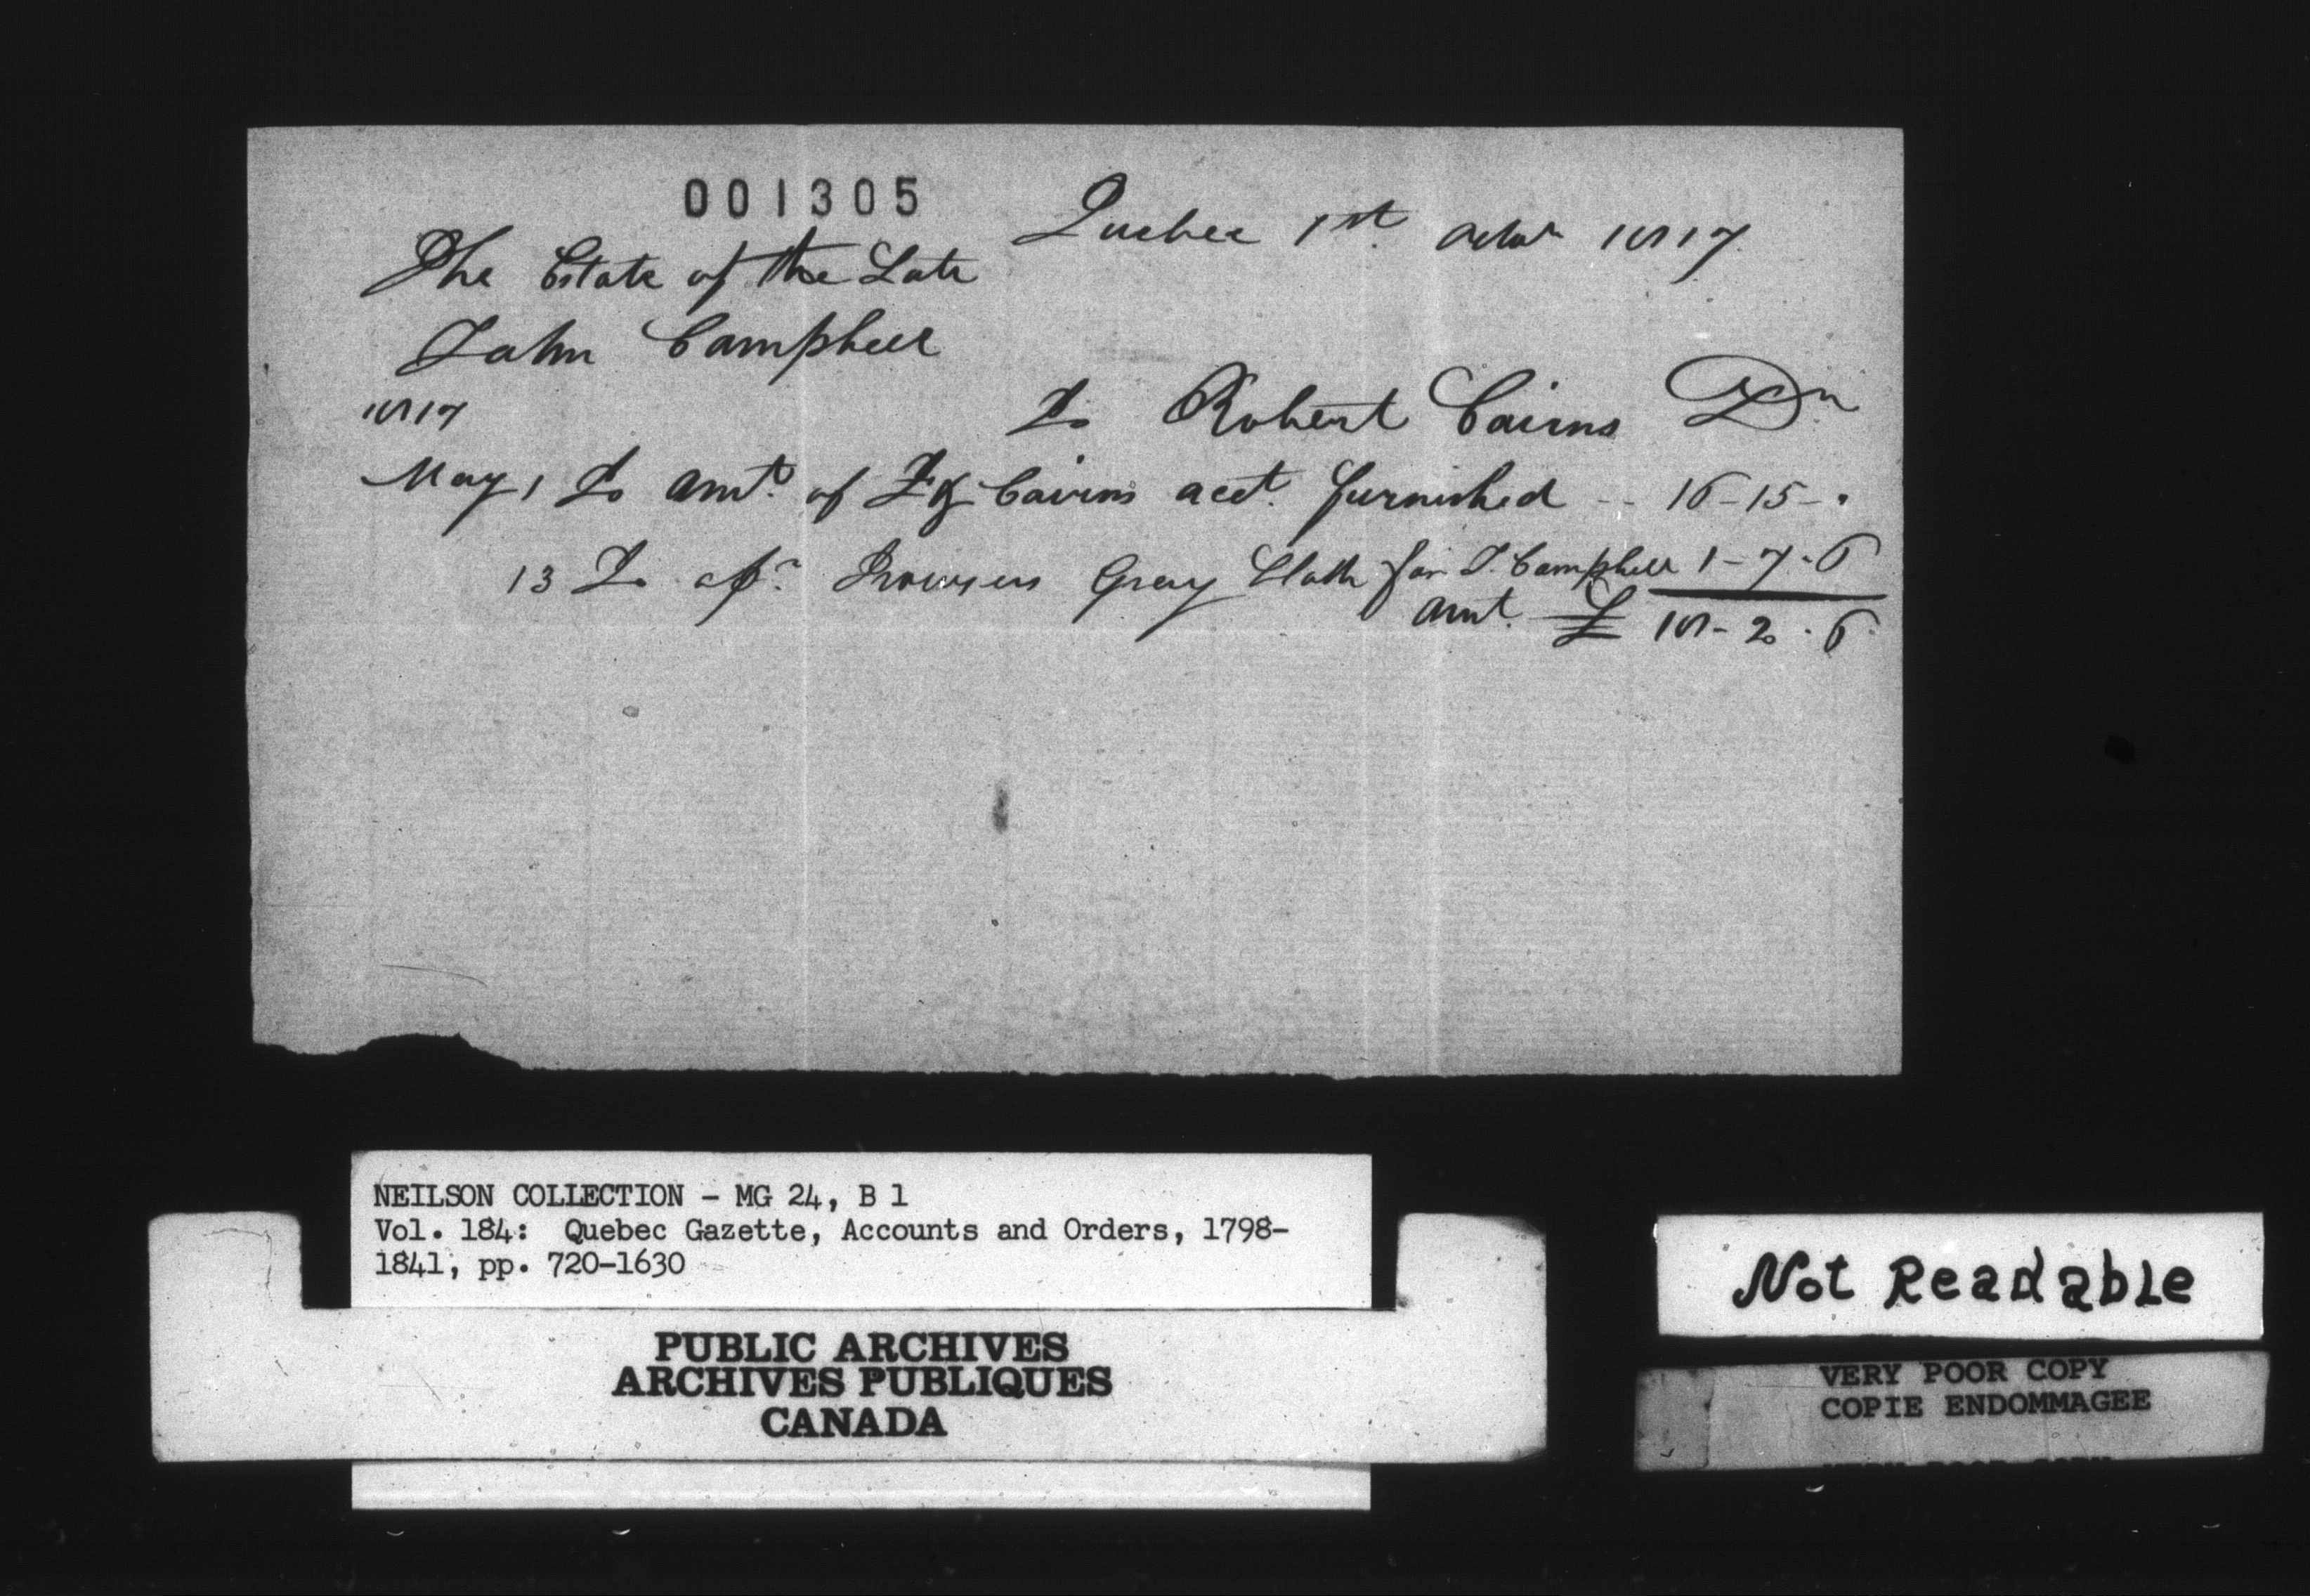 001305
Quebec 1st. Octobr 1817
The Estate of the Late
John Campbell
1817
To Robert Cairns Dr
May 1 To Amt. of Cairns acct. furnished -- 16-15-.
13 To a pr. Trowsers Gray Cloth for J. Campbell 1-7-6
Amt. £ 18-2.6
NEILSON COLLECTION - MG 24, B 1
Vol. 184: Quebec Gazette, Accounts and Orders, 1798-
1841, pp. 720-1630
PUBLIC ARCHIVES
ARCHIVES PUBLIQUES
CANADA
Not Readable
VERY POOR COPY
COPIE ENDOMMAGEE